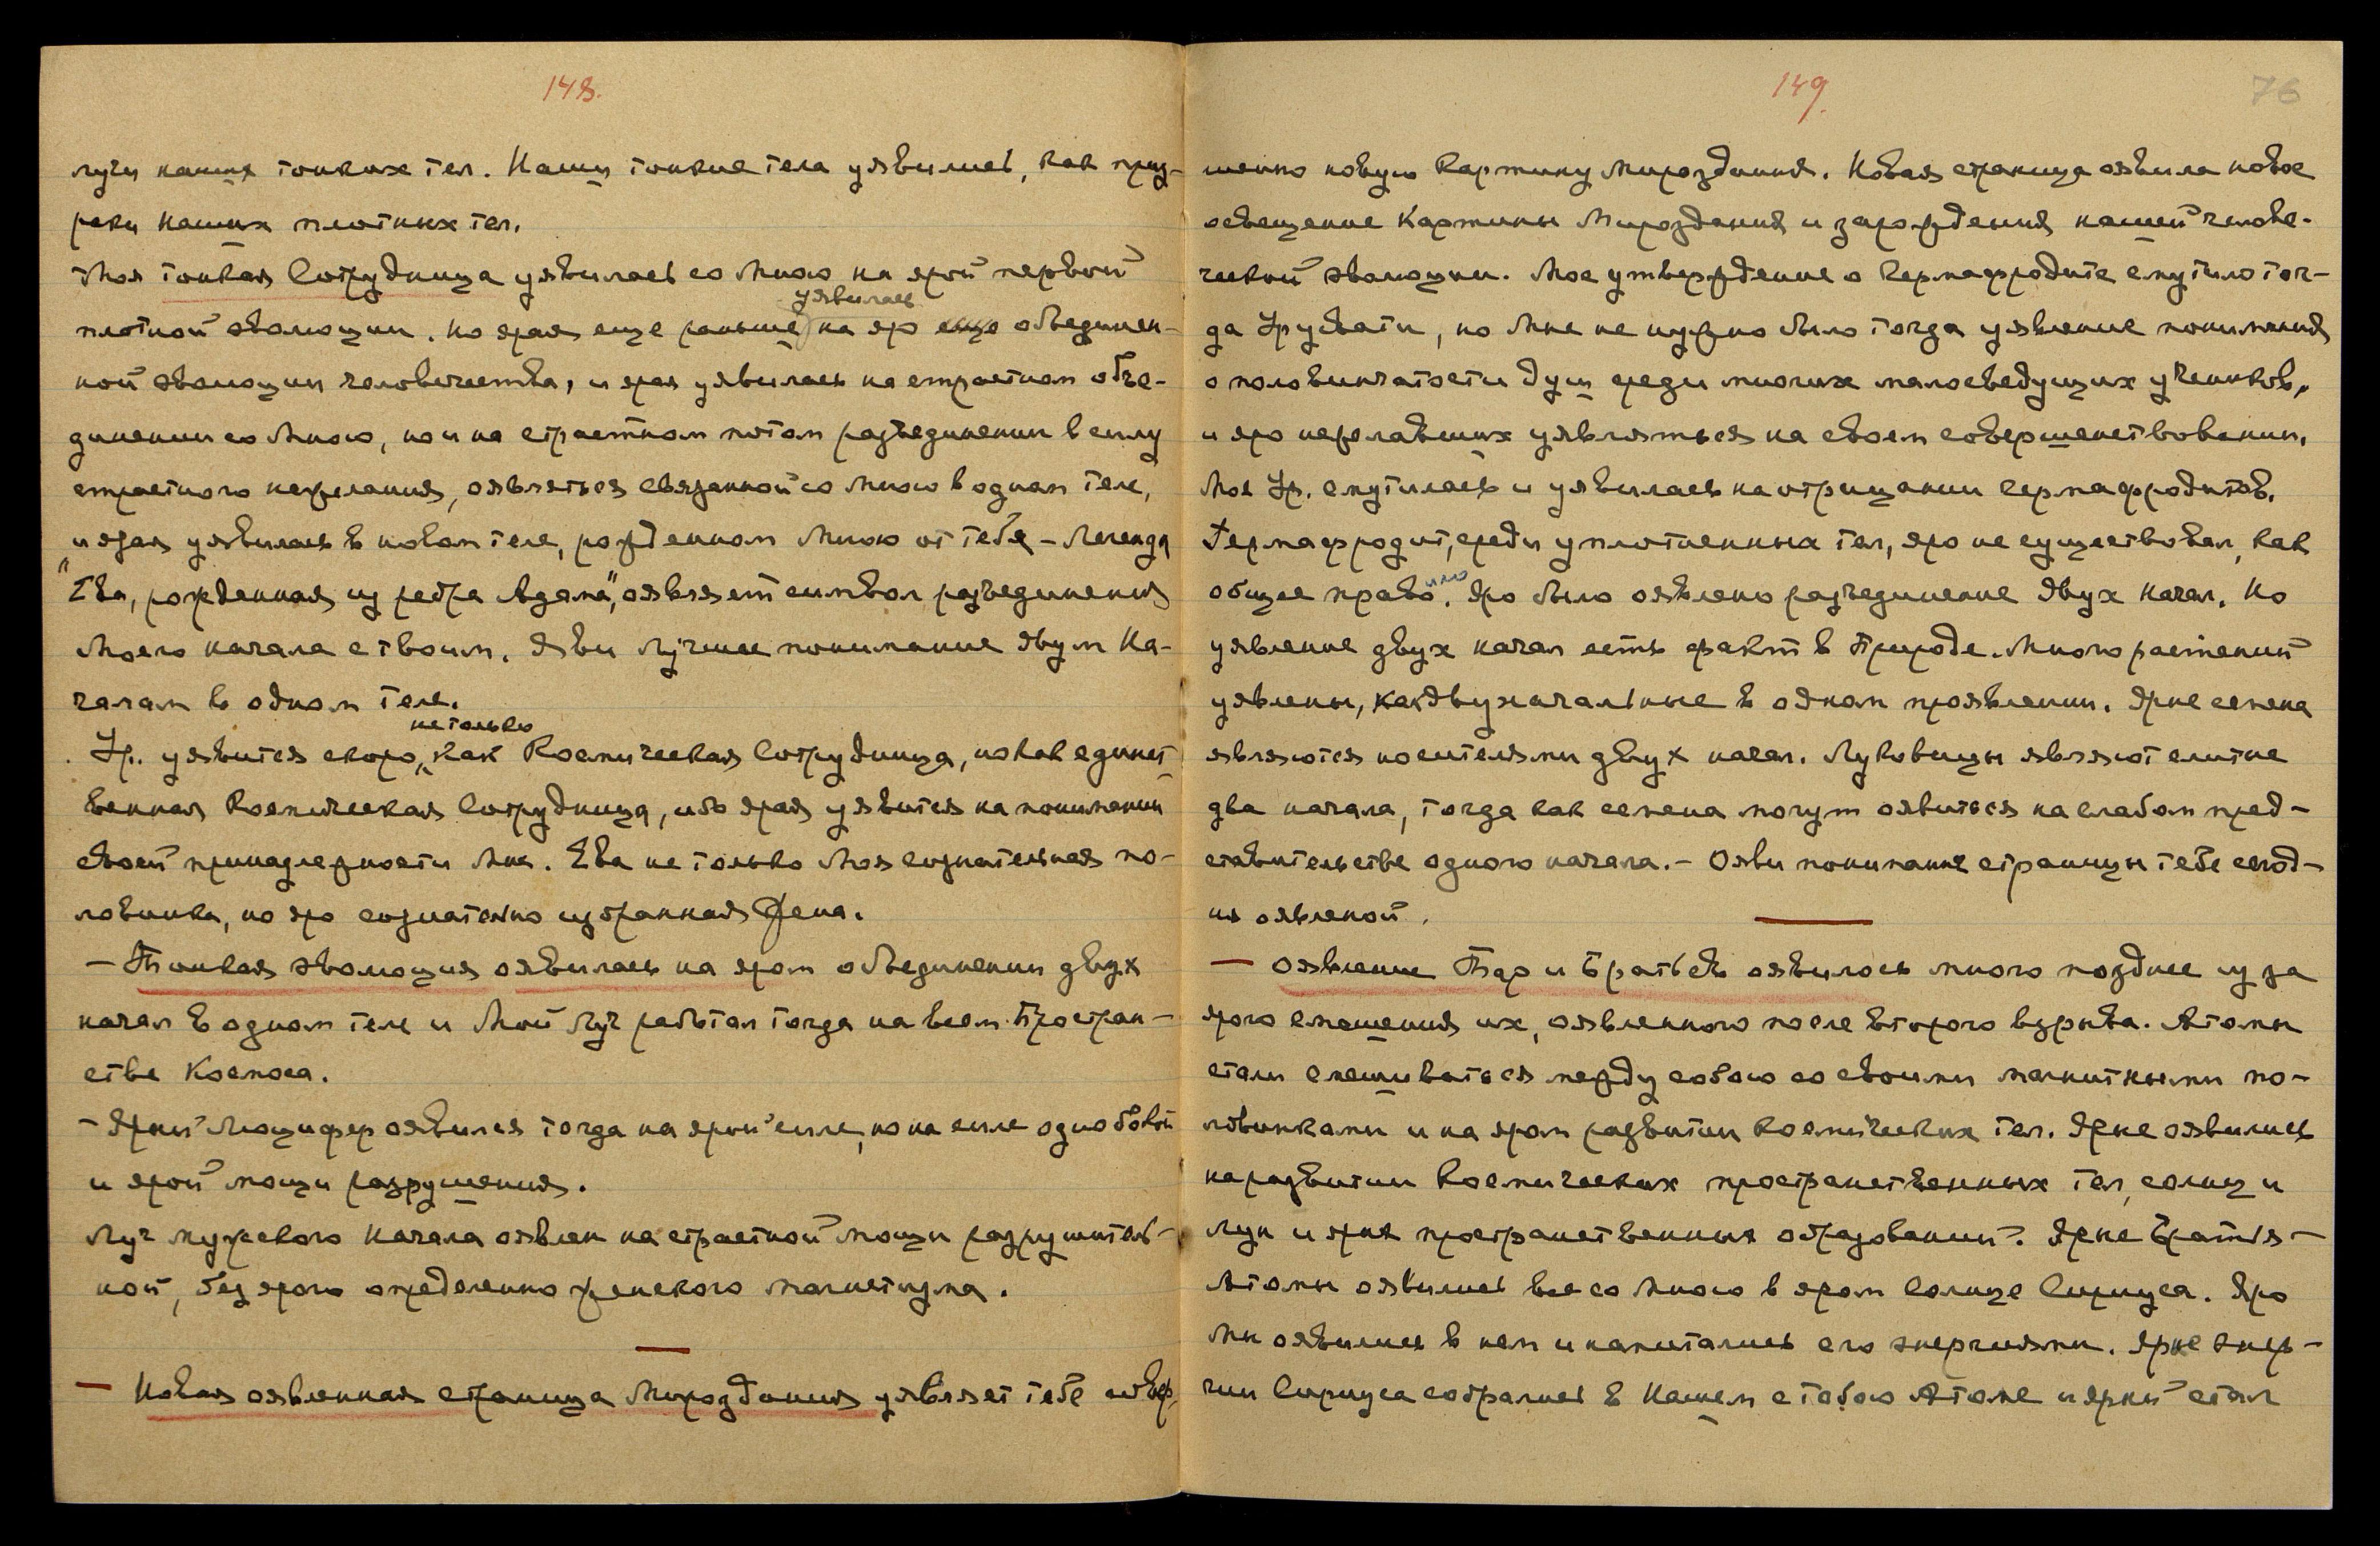 148.
лучи наших тонких тел. Наши тонкие тела уявились, как приз-
раки наших плотных тел.
Моя тонкая Сотрудница уявилась со Мною на ярой первой
плотной эволюции. Но ярая еще раньше уявилась на яро еще объединен-
ной эволюции человечества, и ярая уявилась на страстном объе-
динении со Мною, но и на страстном потом разъединении в силу
страстного нежелания, оявляться связанной со Мною в одном теле,
и ярая уявилась в новом теле, рожденном Мною от тебя – Легенда
"Ева, рожденная из ребра Адама", оявляет символ разъединения
Моего начала с твоим. Яви лучшее понимание двум На-
чалам в одном теле.
Ур. уявится скоро, не только как Космическая Сотрудница, но как единст-
венная Космическая Сотрудница, ибо ярая уявится на понимании
своей принадлежности Мне. Ева не только Моя сознательная по-
ловинка, но яро сознательно избранная Жена.
– Тонкая эволюция оявилась на яром объединении двух
начал в одном теле и Мой Луч работал тогда на всем Простран-
стве Космоса.
– Ярый Люцифер оявился тогда на ярой силе, но на силе однобокой
и ярой мощи разрушения.
Луч мужского Начала оявлен на страстной мощи разрушитель-
ной, без ярого определенно женского магнетизма.
– Новая оявленная страница Мироздания уявляет тебе совер-
149.
76
шенно новую Картину Мироздания. Новая страница оявила новое
освещение Картины Мироздания и зарождения нашей челове-
ческой эволюции. Мое утверждение о Гермафродите смутило тог-
да Урусвати, но Мне не нужно было тогда уявление понимания
о половинчатости душ среди многих малосведущих учеников,
и яро нежелавших уявляться на своем совершенствовании.
Моя Ур. смутилась и уявилась на отрицании гермафродитов.
Гермафродит, среди уплотненных тел, яро не существовал, как
общее правило. Яро было оявлено разъединение двух Начал. Но
уявление двух начал есть факт в Природе. Много растений
уявлены, как двуначальные в одном проявлении. Ярые семена
являются носителями двух начал. Луковицы являют слитые
два начала, тогда как семена могут оявиться на слабом пред-
ставительстве одного начала. – Ояви понимание страницы тебе сегод-
ня оявленной.
– Оявление Пар и Братьев оявилось много позднее из за
ярого смешения их, оявленного после второго взрыва. Атомы
стали смешиваться между собою со своими магнитными по-
ловинками и на яром развитии космических тел. Ярые оявились
на развитии космических пространственных тел, солнц и
лун и ярых пространственных образований. Ярые Братья –
Атомы оявились все со Мною в яром Солнце Сириуса. Яро
Мы оявились в нем и напитались его энергиями. Ярые энер-
гии Сириуса собрались в Нашем с тобою Атоме и ярый стал